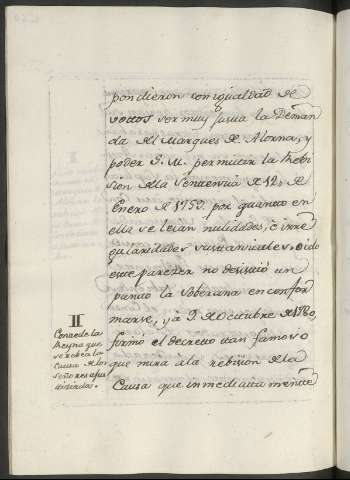 pondieron con igualdad de
vottos ser muy justa la Deman
da del Marques de Alorna, y
poder S. M. permitir la Rebi
sion de la Sentencia de 12 de
Enero de 1759. por quanto en
ella se leian nulidades, è irre
gularidades sustanciales. oido
este parezer no desistió un
punto la Soberana en confor
marse, y à 9. de Octubre de 1780,
formó el decretto tan famoso
que mira á la rebision de la
Causa que inmediattamentte
II
Conzede la
Reyna que
se rebea la
Causa de los
Señores ajus
ticiados.